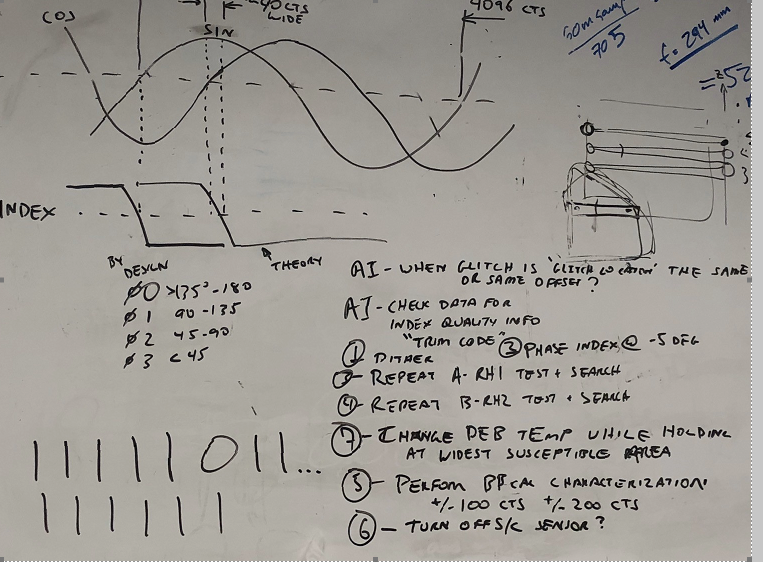 COS
~40 CTS
WIDE
SIN
4096 CTS
705
f= 294 mm
INDEX
THEORY
BY
DESIGN
Ø0 >135°-180
Ø1 90-135
Ø2 45-90
Ø3 < 45
AI- WHEN GLITCH IS "GLITCH LOCATION" THE SAME
OR SAME OFFSET?
AI-CHECK DATA FOR
INDEX QUALITY INFO
"TRIM CODE"
① DITHER ② PHASE INDEX @ -5 DEG
③- REPEAT A-RH1 TEST + SEARCH
④- REPEAT B-RH2 TEST + SEARCH
⑦- CHANGE DEB TEMP WHILE HOLDING
AT WIDEST SUSCEPTIBLE AREA
⑤- PERFOM CAL CHARACTERIZATION:
+/-100 CTS +/-200 CTS
⑥- TURN OFF S/C SENSOR?
| | | | | 0 | | ...
| | | | | |